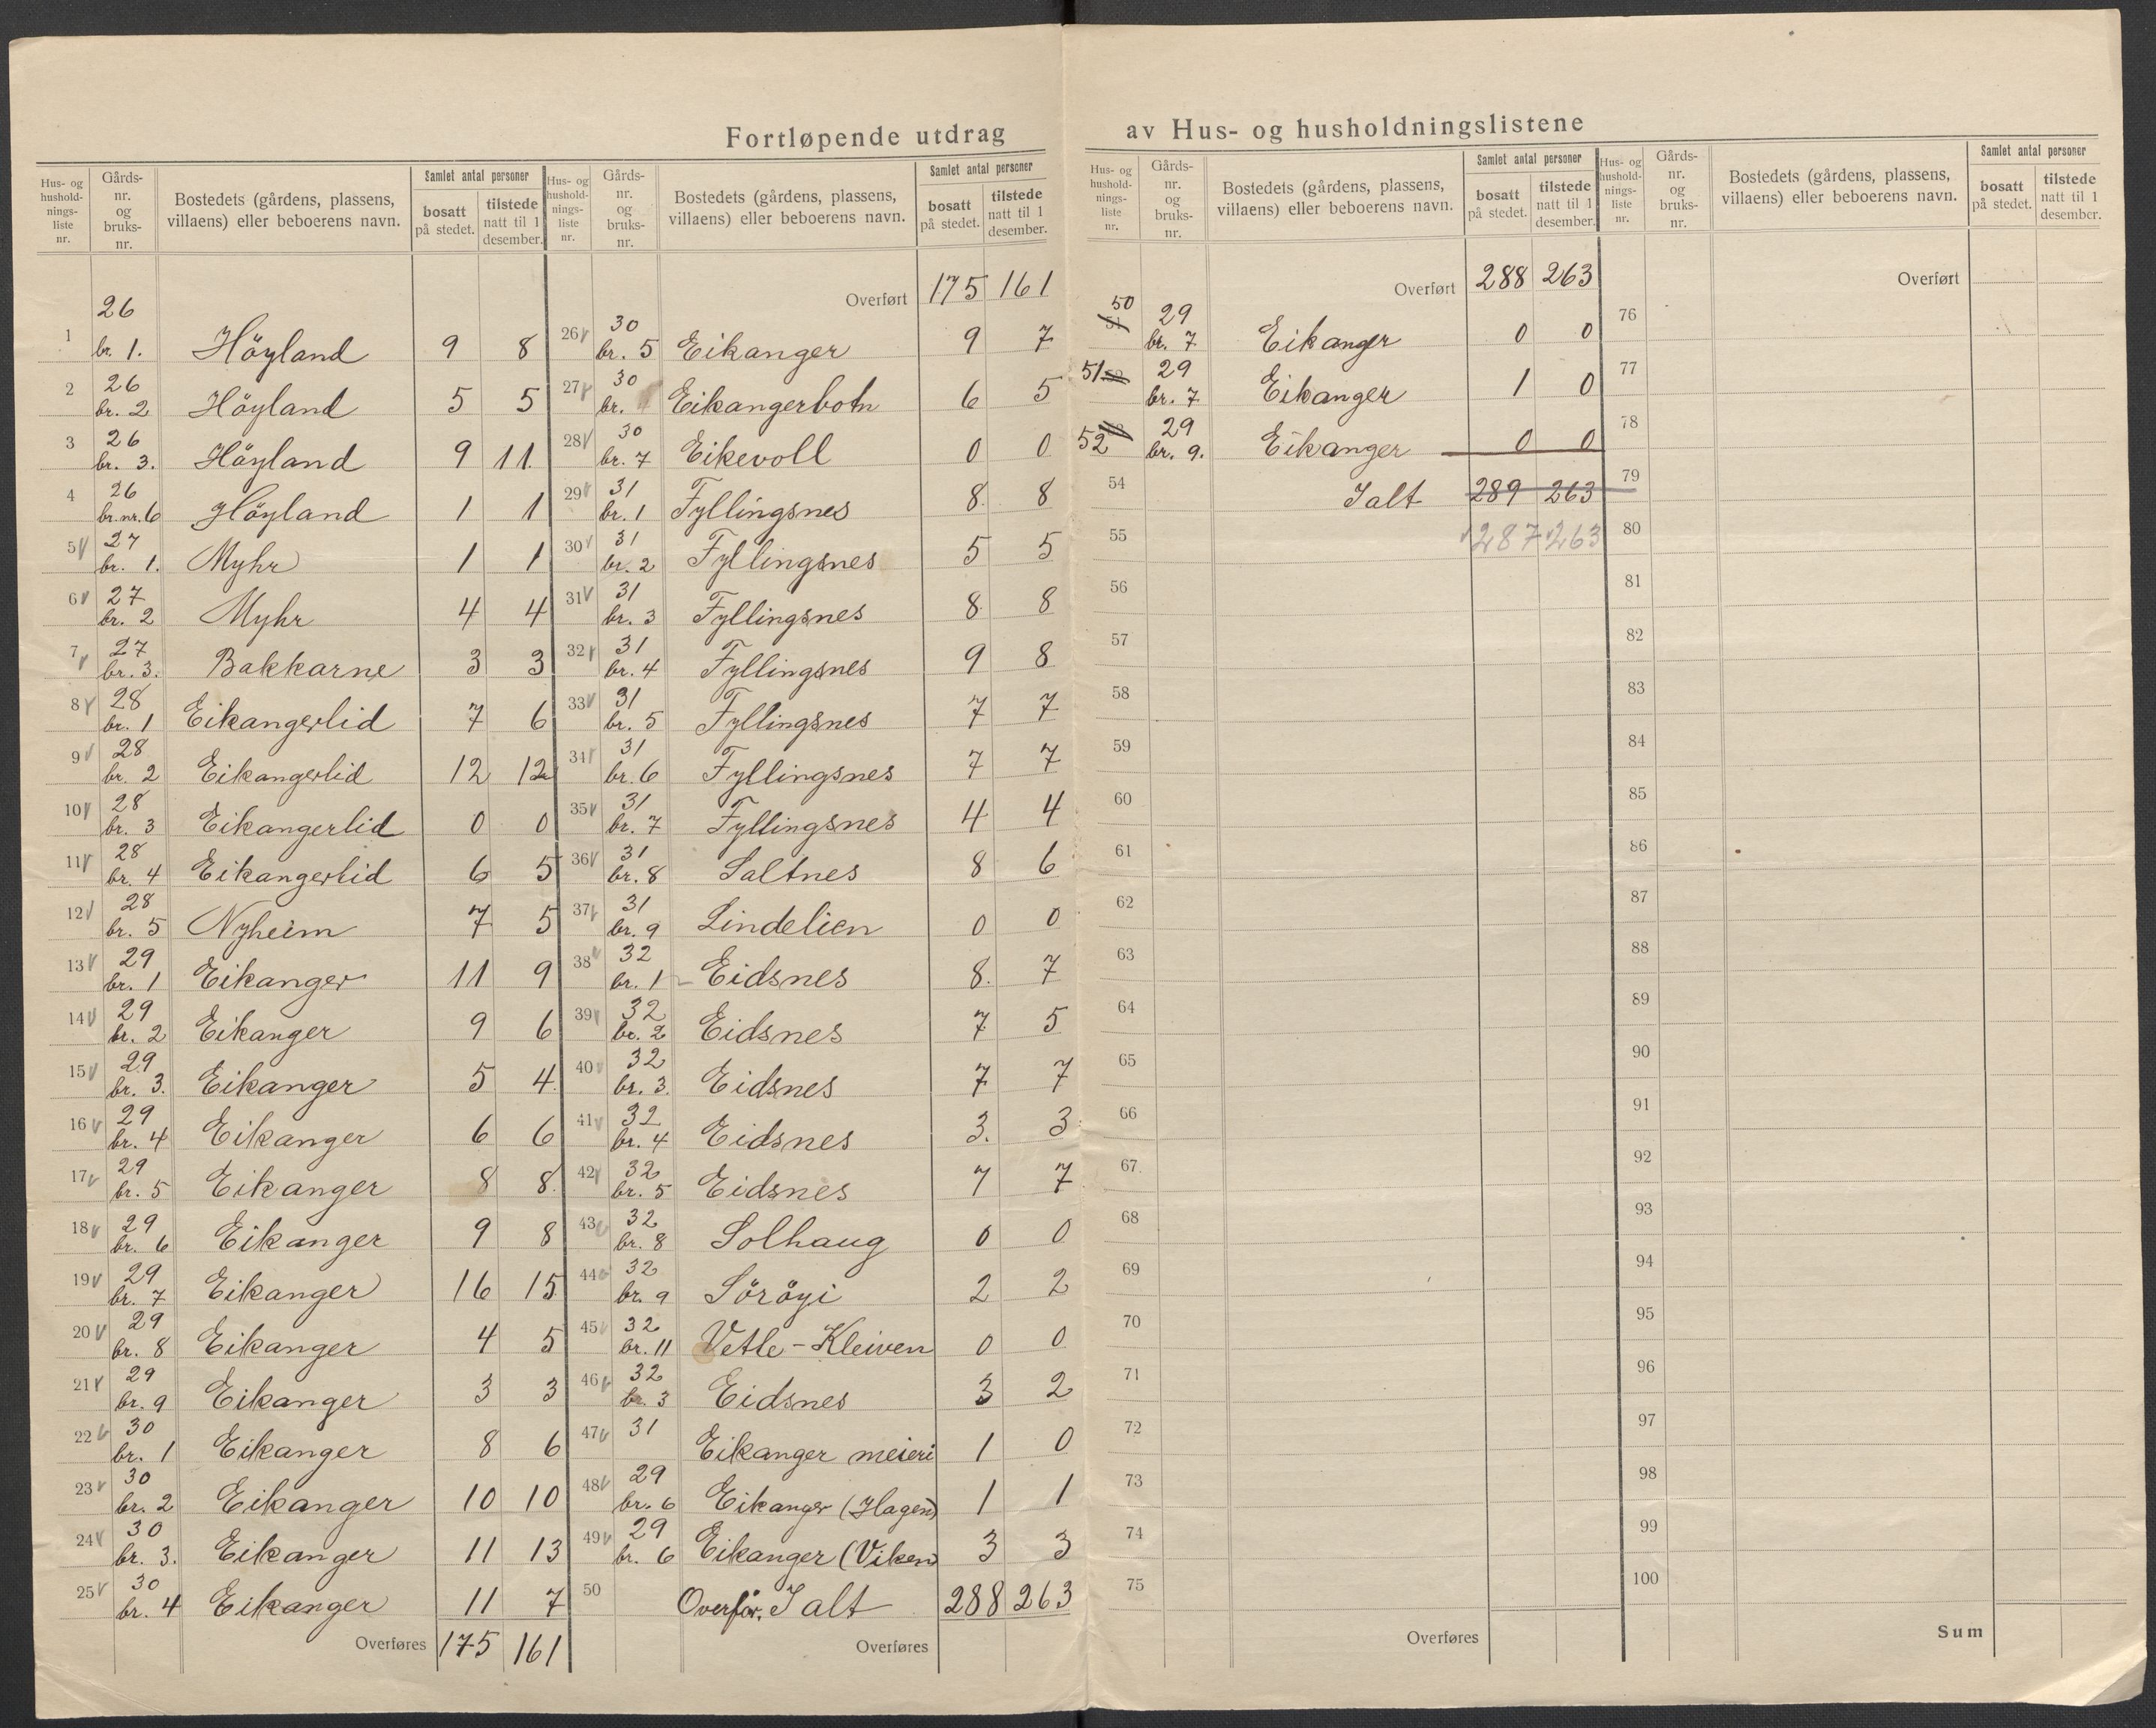 Fortløpende utdrag av Hus- og husholdningslistene
Hus- og husholdnings-liste nr. | Gårds-nr. og bruks-nr. | Bostedets (gårdens, plassens, villaens) eller beboerens navn. | Samlet antal personer | bosatt på stedet. | tilstede natt til 1 desember.
1 26 br. 1. Höyland 9 8
2 26 br. 2 Höyland 5 5
3 26 br. 3. Höyland 9 11.
4 26 br.nr. 6 Höyland 1 1
5 27 br. 1. Myhr 1 1
6 27 br. 2 Myhr 4 4
7 27 br. 3. Bakkarne 3 3
8 28 br. 1 Eikangerlid 7 6
9 28 br. 2 Eikangerlid 12 12
10 28 br. 3 Eikangerlid 0 0
11 28 br. 4 Eikangerlid 6 5
12 28 br. 5 Nyheim 7 5
13 29 br. 1 Eikanger 11 9
14 29 br. 2 Eikanger 9 6
15 29 br. 3. Eikanger 5 4.
16 29 br. 4 Eikanger 6 6
17 29 br. 5 Eikanger 8 8.
18 29 br. 6 Eikanger 9 8
19 29 br. 7 Eikanger 16 15
20 29 br. 8 Eikanger 4 5
21 29 br. 9 Eikanger 3 3
22 30 br. 1 Eikanger 8 6
23 30 br. 2 Eikanger 10 10
24 30 br. 3. Eikanger 11 13
25 30 br. 4 Eikanger 11 7
Overføres 175 161
Hus- og husholdnings-liste nr. | Gårds-nr. og bruks-nr. | Bostedets (gårdens, plassens, villaens) eller beboerens navn. | Samlet antal personer | bosatt på stedet. | tilstede natt til 1 desember.
Overført 175 161
26 30 br. 5 Eikanger 9 7
27 30 br. Eikangerbotn 6 5
28 30 br. 7 Eikevoll 0 0
29 31 br. 1 Fyllingsnes 8. 8
30 31 br. 2 Fyllingsnes 5 5
31 31 br. 3 Fyllingsnes 8. 8
32 31 br. 4 Fyllingsnes 9 8
33 31 br. 5 Fyllingsnes 7 7
34 31 br. 6 Fyllingsnes 7 7
35 31 br. 7 Fyllingsnes 4 4
36 31 br. 8 Saltnes 8 6
37 31 br. 9 Lindelien 0 0
38 32 br. 1 Eidsnes 8. 7
39 32 br. 2 Eidsnes 7 5
40 32 br. 3. Eidsnes 7 7
41 32 br. 4 Eidsnes 3. 3
42 32 br. 5 Eidsnes 7 7
43 32 br. 8 Solhaug 0 0
44 32 br. 9 Söröyi 2 2
45 32 br. 11 Vetle-Kleiven 0 0
46 32 br. 3 Eidsnes 3 2
47 31 Eikanger meieri 1 0
48 29 br. 6 Eikanger (Hagen) 1 1
49 29 br. 6 Eikanger (Viken 3 3
50 Overför. I alt 288 263
Overføres
Hus- og husholdnings-liste nr. | Gårds-nr. og bruks-nr. | Bostedets (gårdens, plassens, villaens) eller beboerens navn. | Samlet antal personer | bosatt på stedet. | tilstede natt til 1 desember.
Overført 288 263
50 51 29 br. 7 Eikanger 0 0
51 29 br. 7 Eikanger 1 0
52 29 br. 9. Eikanger 0 0
54 Ialt 289 263
55 287 263
56
57
58
59
60
61
62
63
64
65
66
67
68
69
70
71
72
73
74
75
Overføres
Hus- og husholdnings-liste nr. | Gårds-nr. og bruks-nr. | Bostedets (gårdens, plassens, villaens) eller beboerens navn. | Samlet antal personer | bosatt på stedet. | tilstede natt til 1 desember.
Overført
76
77
78
79
80
81
82
83
84
85
86
87
88
89
90
91
92
93
94
95
96
97
98
99
100
Sum